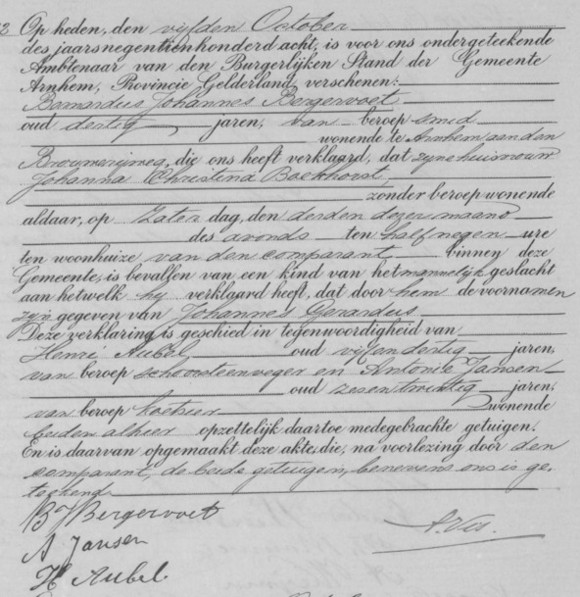 Op heden, den vijfden October
des jaars negentienhonderd acht, is voor ons ondergeteekende
Ambtenaar van den Burgerlijken Stand der Gemeente
Arnhem, Provincie Gelderland, verschenen:
Bernardus Johannes Bergervoet
oud dertig jaren, van beroep smid
wonende te Arnhem aan den
Brouwerijweg, die ons heeft verklaard, dat zijne huisvrouw
Johanna Christina Boekhorst
zonder beroep wonende
aldaar, op Zaterdag, den derden dezer maand
des avonds ten half negen ure
ten woonhuize van den comparant binnen deze
Gemeente, is bevallen van een kind van het mannelijk geslacht
aan hetwelk hij verklaard heeft, dat door hem de voornamen
zijn gegeven van Johannes Gerardus
Deze verklaring is geschied in tegenwoordigheid van
Henri Aubel oud vijfendertig jaren,
van beroep schoorsteenveger en Antonie Jansen
oud zesentwintig jaren,
van beroep koetsier wonende
beiden alhier opzettelijk daartoe medegebrachte getuigen.
En is daarvan opgemaakt deze akte, die, na voorlezing door den
comparant, de beide getuigen, benevens ons is ge-
teekend
B J Bergervoet
A Jansen
H Aubel